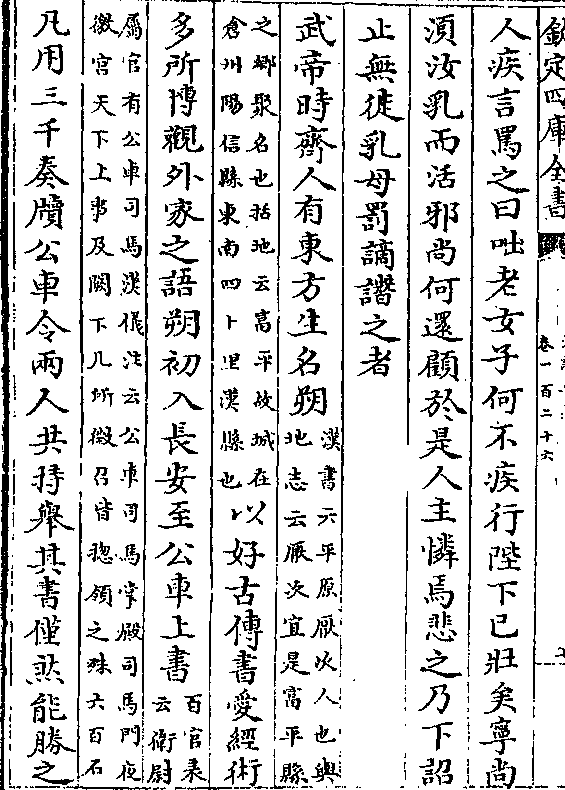 欽定四庫全書
卷一百二十六
人疾言罵之曰咄老女子何不疾行陛下已壯矣寧尚
須汝乳而活邪尚何還顧於是人主憐焉悲之乃下詔
止無徙乳母罰謫譖之者
武帝時齊人有東方生名朔
漢書云平原厭次人也輿
地志云厭次宜是富平縣
之鄉聚名也括地云富平故城在
倉州陽信縣東南四十里漢縣也
以好古傳書愛經術
多所博觀外家之語朔初入長安至公車上書
百官表
云衛尉
屬官有公車司馬漢儀注云公車司馬掌殿司馬門夜
徼宫天下上事及闕下凡所徴召皆總領之秩六百石
凡用三千奏牘公車令兩人共持舉其書僅然能勝之